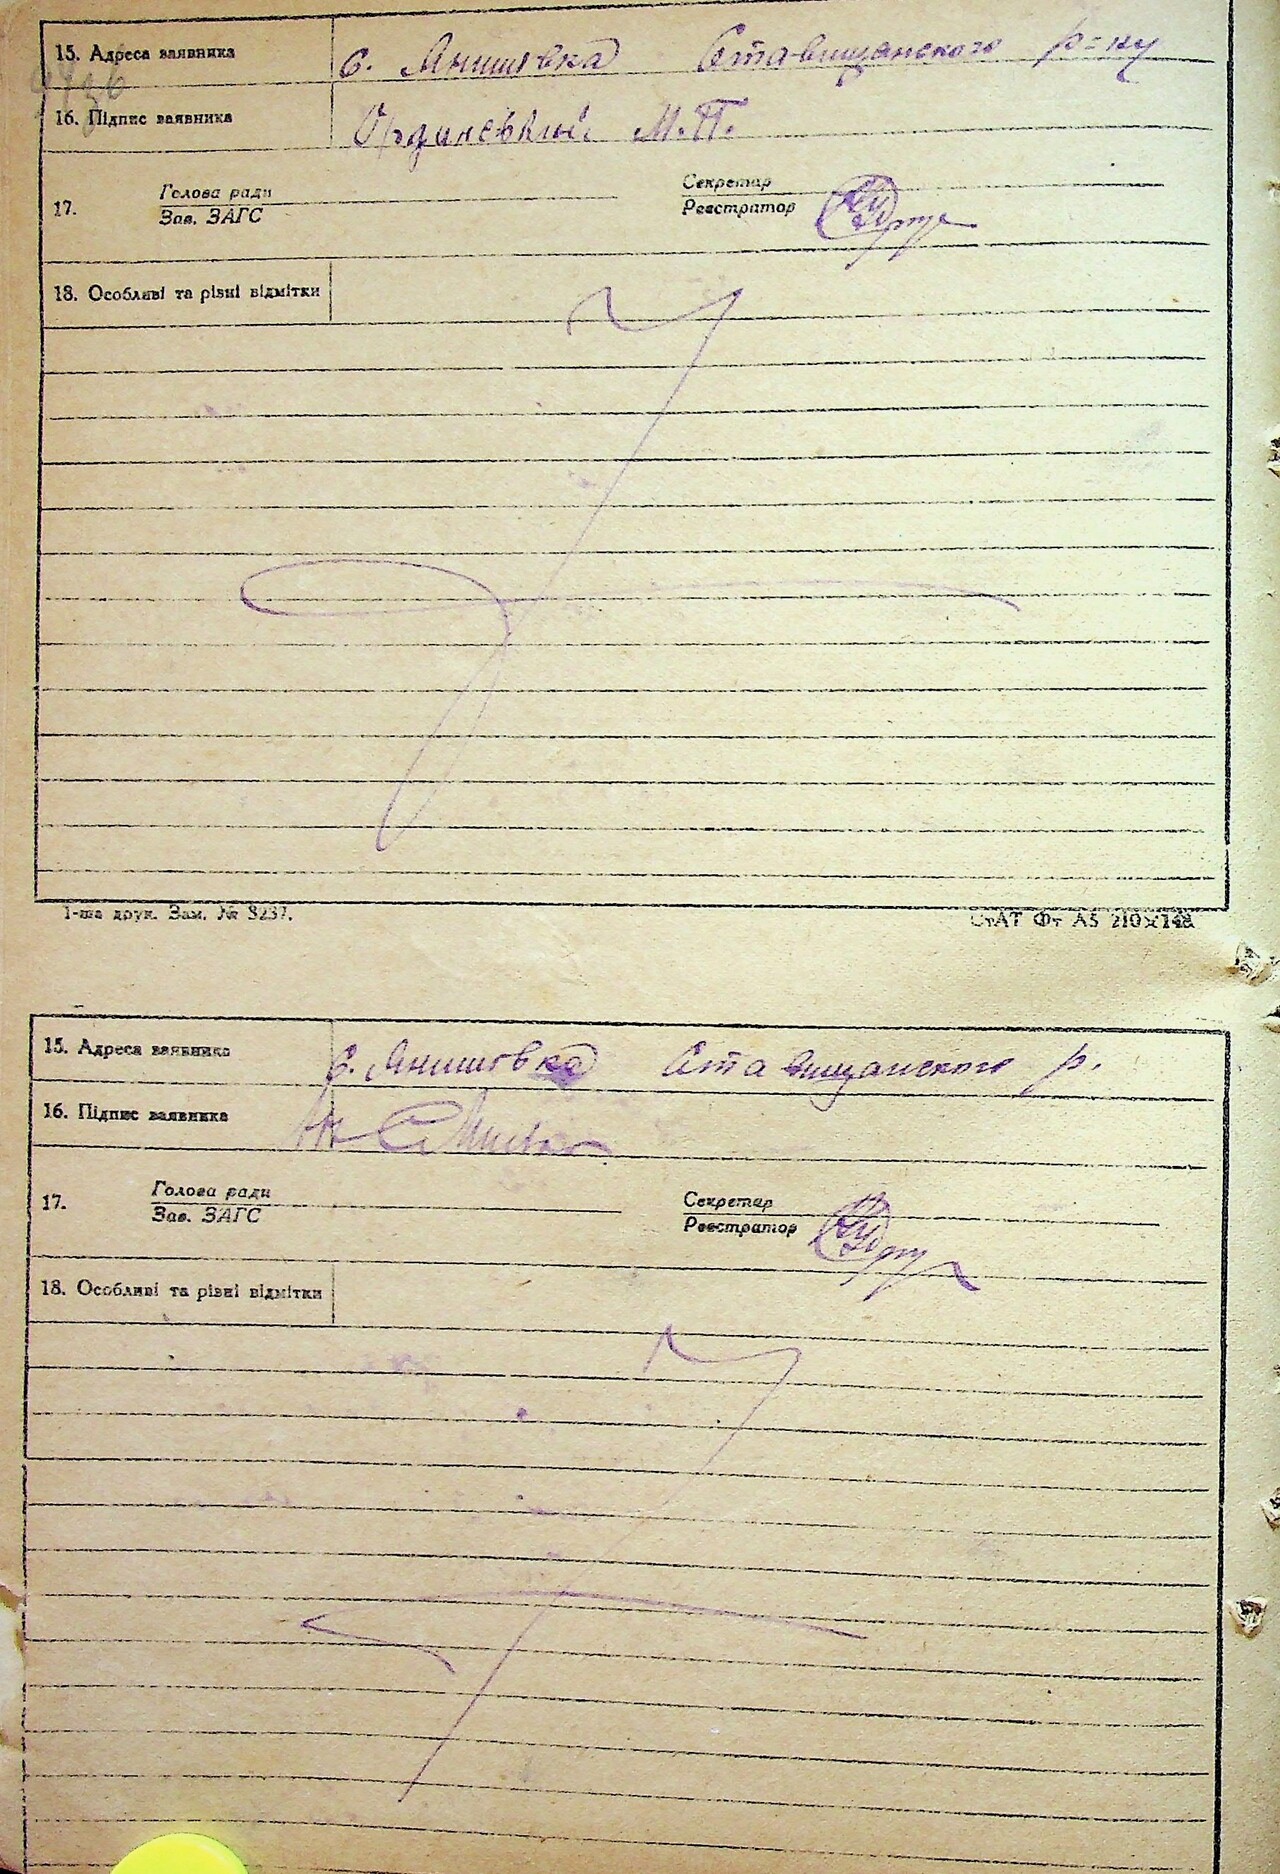 15. Адреса заявника с. Янишовка Ставищанского р=ну
16. Підпис заявника М.П.
17. Голова ради Секретар
Зав. ЗАГС Реєстратор
18. Особливі та різні відмітки
1-ша друк. Зам. № 3237. СтАТ Фт А5 210×148
15. Адреса заявника с. Янишовка Ставищанского р.
16. Підпис заявника
17. Голова ради Секретар
Зав. ЗАГС Реєстратор
18. Особливі та різні відмітки